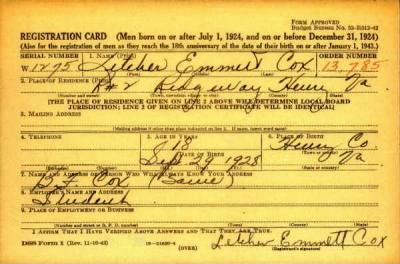 FORM APPROVED
Budget Bureau No. 33-R012-42
REGISTRATION CARD (Men born on or after July 1, 1924, and on or before December 31, 1924)
(Also for the registration of men as they reach the 18th anniversary of the date of their birth on or after January 1, 1943.)
SERIAL NUMBER 1. NAME (Print) ORDER NUMBER
W1275 Letcher Emmett Cox 13,785
2. PLACE OF RESIDENCE (Print)
R#2 Ridgeway Henry Va
[THE PLACE OF RESIDENCE GIVEN ON LINE 2 ABOVE WILL DETERMINE LOCAL BOARD
JURISDICTION; LINE 2 OF REGISTRATION CERTIFICATE WILL BE IDENTICAL]
3. MAILING ADDRESS
[Mailing address if other than place indicated on line 2. If same, insert word same]
4. TELEPHONE 5. AGE IN YEARS 6. PLACE OF BIRTH
18 Henry Co.
DATE OF BIRTH
29 1928 Va
7. NAME AND ADDRESS OF PERSON WHO WILL ALWAYS KNOW YOUR ADDRESS
Cox (Same)
8. EMPLOYER'S NAME AND ADDRESS
Student
9. PLACE OF EMPLOYMENT OR BUSINESS
I AFFIRM THAT I HAVE VERIFIED ABOVE ANSWERS AND THAT THEY ARE TRUE.
DSS Form 1 (Rev. 11-16-42) (OVER) Letcher Emmett Cox
(Registrant's signature)